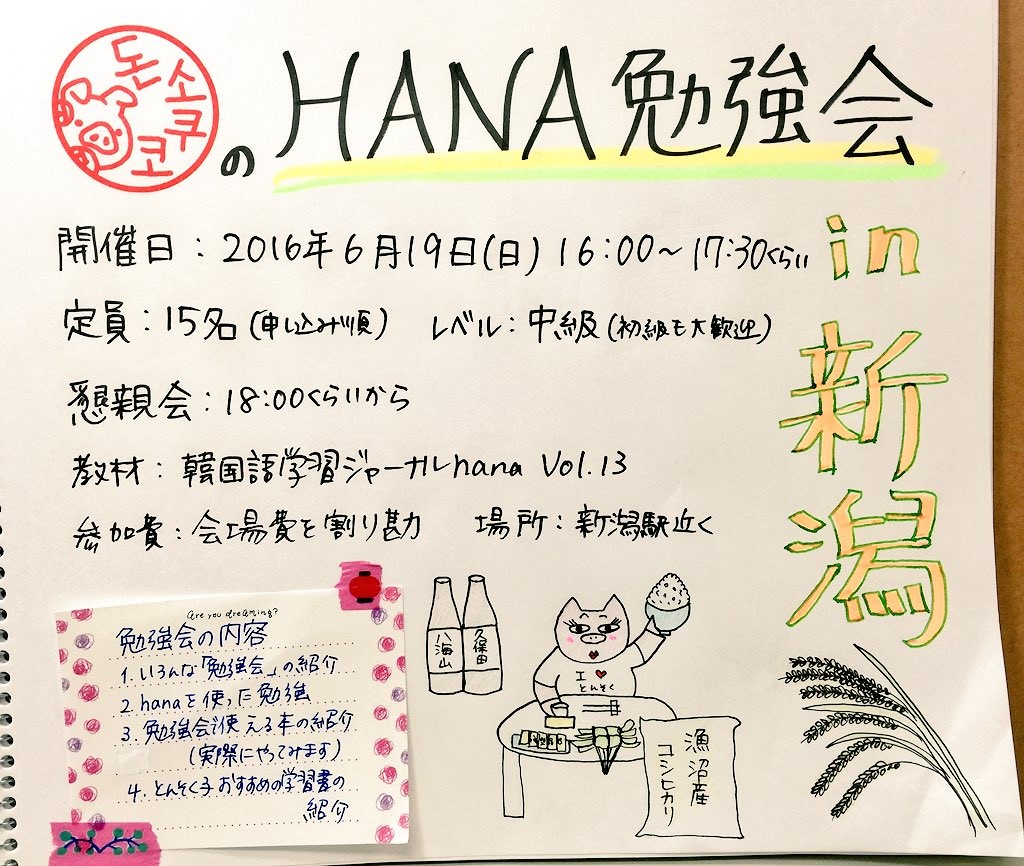 돈소쿠코
の HANA勉強会
in 新潟
開催日：2016年6月19日(日) 16:00〜17:30くらい
定員：15名(申し込み順) レベル：中級(初級も大歓迎)
懇親会：18:00くらいから
教材：韓国語学習ジャーナルhana Vol.13
参加費：会場費を割り勘 場所：新潟駅近く
Are you dreaming?
勉強会の内容
1. いろんな「勉強会」の紹介
2 hanaを使った勉強
3. 勉強会で使える本の紹介
(実際にやってみます)
4. とんそく子おすすめの学習書の
紹介
八海山
久保田
I ♥
とんそく
漁沼産
コシヒカリ